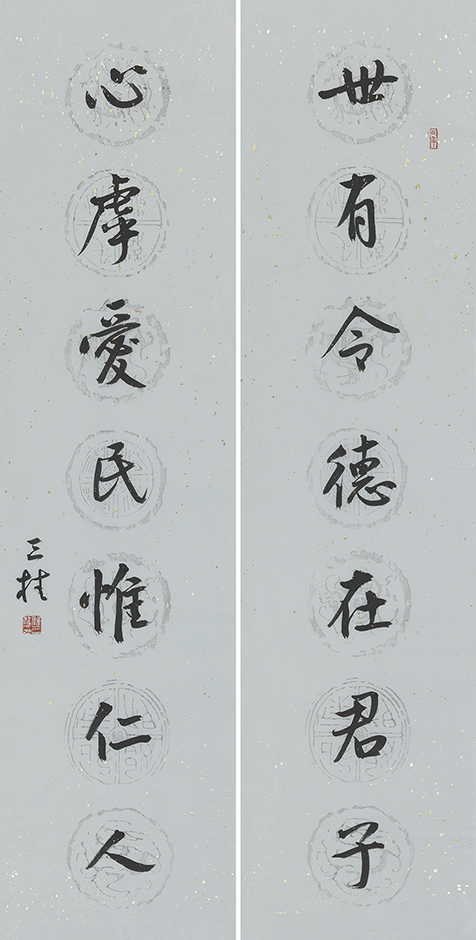 世有令德在君子
心虖愛民惟仁人
三桂